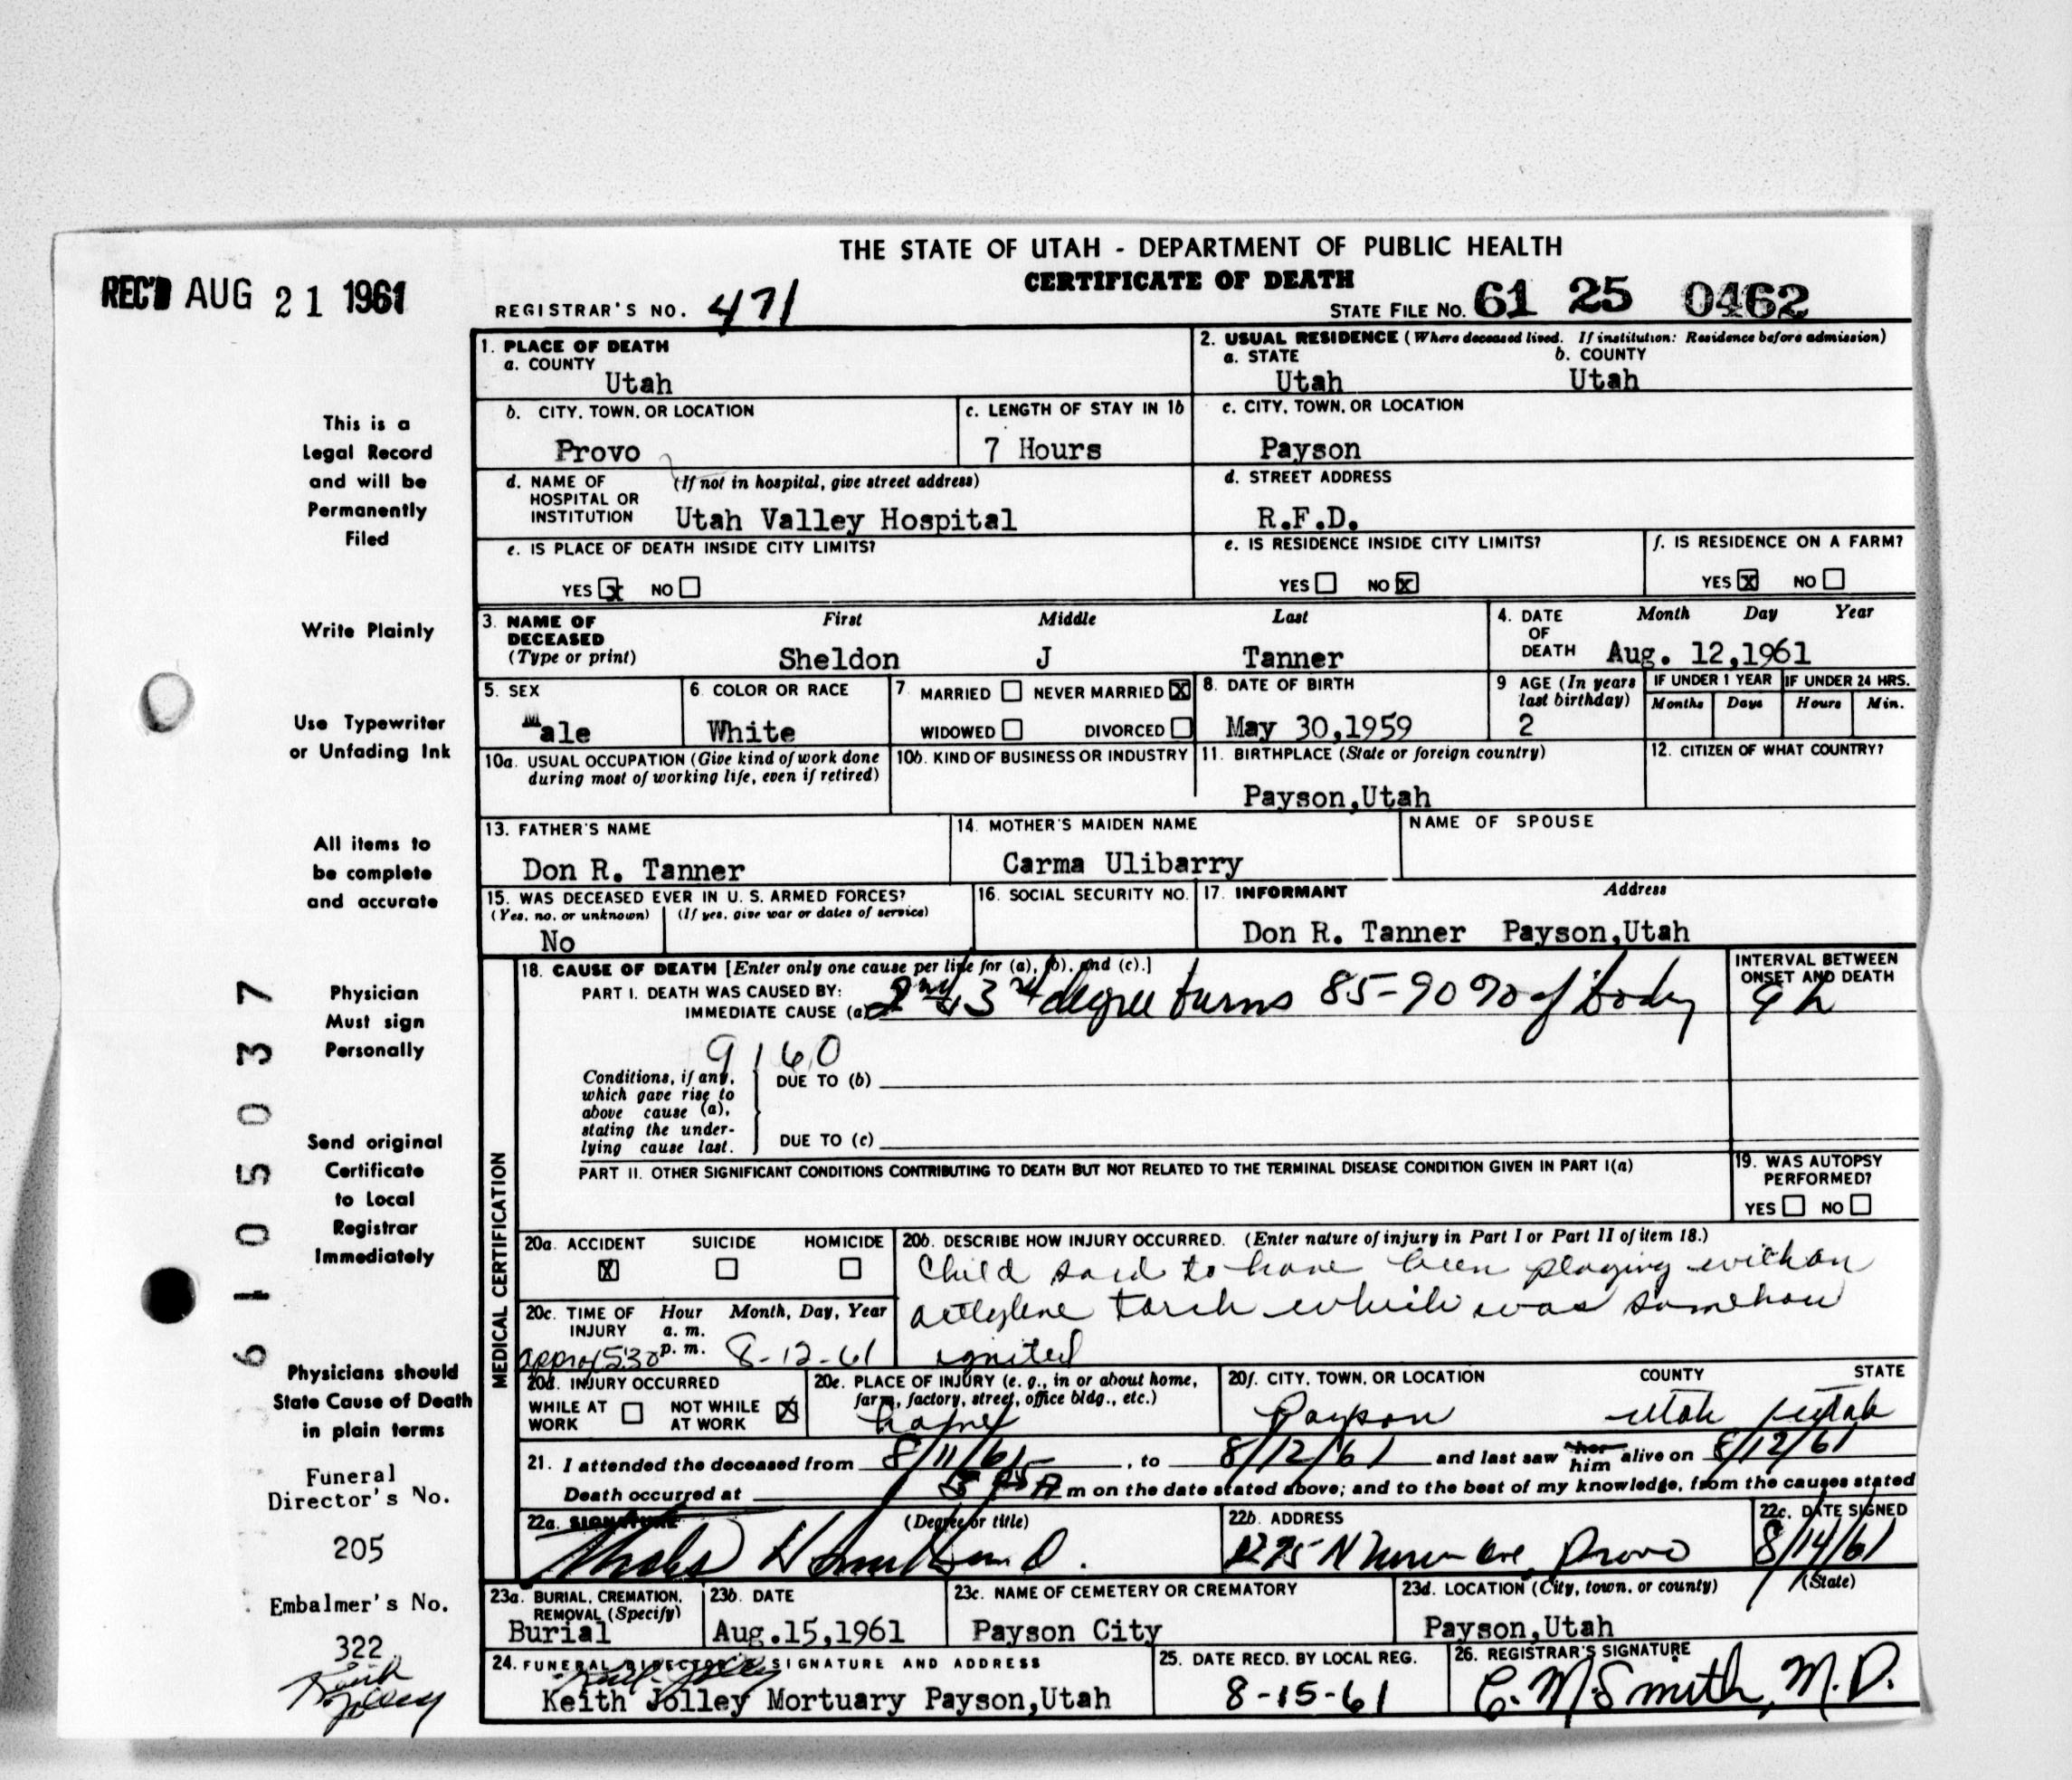 THE STATE OF UTAH - DEPARTMENT OF PUBLIC HEALTH
CERTIFICATE OF DEATH
REC'D AUG 21 1961
REGISTRAR'S NO. 471
STATE FILE NO. 61 25 0462
1. PLACE OF DEATH
a. COUNTY
Utah
2. USUAL RESIDENCE (Where deceased lived. If institution: Residence before admission)
a. STATE b. COUNTY
Utah Utah
b. CITY, TOWN, OR LOCATION
Provo
c. LENGTH OF STAY IN 1b
7 Hours
c. CITY, TOWN, OR LOCATION
Payson
d. NAME OF (If not in hospital, give street address)
HOSPITAL OR
INSTITUTION Utah Valley Hospital
d. STREET ADDRESS
R.F.D.
e. IS PLACE OF DEATH INSIDE CITY LIMITS?
YES x NO
e. IS RESIDENCE INSIDE CITY LIMITS?
YES NO x
f. IS RESIDENCE ON A FARM?
YES x NO
3. NAME OF First Middle Last
DECEASED
(Type or print) Sheldon J Tanner
4. DATE Month Day Year
OF
DEATH Aug. 12,1961
5. SEX
Male
6. COLOR OR RACE
White
7. MARRIED NEVER MARRIED X
WIDOWED DIVORCED
8. DATE OF BIRTH
May 30,1959
9 AGE (In years
last birthday)
2
IF UNDER 1 YEAR IF UNDER 24 HRS.
Months Days Hours Min.
10a. USUAL OCCUPATION (Give kind of work done
during most of working life, even if retired)
10b. KIND OF BUSINESS OR INDUSTRY
11. BIRTHPLACE (State or foreign country)
Payson,Utah
12. CITIZEN OF WHAT COUNTRY?
13. FATHER'S NAME
Don R. Tanner
14. MOTHER'S MAIDEN NAME
Carma Ulibarry
NAME OF SPOUSE
15. WAS DECEASED EVER IN U. S. ARMED FORCES?
(Yes, no, or unknown) (If yes, give war or dates of service)
No
16. SOCIAL SECURITY NO.
17. INFORMANT Address
Don R. Tanner Payson,Utah
MEDICAL CERTIFICATION
18. CAUSE OF DEATH [Enter only one cause per line for (a), (b), and (c).]
PART I. DEATH WAS CAUSED BY:
IMMEDIATE CAUSE (a) 2nd & 3rd degree burns 85-90 % of body
INTERVAL BETWEEN
ONSET AND DEATH
9 h
9160
Conditions, if any,
which gave rise to
above cause (a),
stating the under-
lying cause last.
DUE TO (b)
DUE TO (c)
PART II. OTHER SIGNIFICANT CONDITIONS CONTRIBUTING TO DEATH BUT NOT RELATED TO THE TERMINAL DISEASE CONDITION GIVEN IN PART I(a)
19. WAS AUTOPSY
PERFORMED?
YES NO
20a. ACCIDENT SUICIDE HOMICIDE
X
20b. DESCRIBE HOW INJURY OCCURRED. (Enter nature of injury in Part I or Part II of item 18.)
Child said to have been playing with an
acetylene torch which was somehow
ignited
20c. TIME OF Hour Month, Day, Year
INJURY a. m.
approx 530 p. m. 8-12-61
20d. INJURY OCCURRED
WHILE AT NOT WHILE X
WORK AT WORK
20e. PLACE OF INJURY (e. g., in or about home,
farm, factory, street, office bldg., etc.)
home
20f. CITY, TOWN, OR LOCATION COUNTY STATE
Payson Utah Utah
21. I attended the deceased from 8/11/61, to 8/12/61 and last saw her him alive on 8/12/61
Death occurred at A m on the date stated above; and to the best of my knowledge, from the causes stated
22a. SIGNATURE (Degree or title)
22b. ADDRESS
Provo
22c. DATE SIGNED
8/14/61
23a. BURIAL, CREMATION,
REMOVAL (Specify)
Burial
23b. DATE
Aug.15,1961
23c. NAME OF CEMETERY OR CREMATORY
Payson City
23d. LOCATION (City, town, or county) (State)
Payson,Utah
24. FUNERAL DIRECTOR'S SIGNATURE AND ADDRESS
Keith Jolley
Keith Jolley Mortuary Payson,Utah
25. DATE RECD. BY LOCAL REG.
8-15-61
26. REGISTRAR'S SIGNATURE
C. M. Smith, M.D.
This is a
Legal Record
and will be
Permanently
Filed
Write Plainly
Use Typewriter
or Unfading Ink
All items to
be complete
and accurate
Physician
Must sign
Personally
Send original
Certificate
to Local
Registrar
Immediately
Physicians should
State Cause of Death
in plain terms
Funeral
Director's No.
205
Embalmer's No.
322
Keith
Jolley
6105037